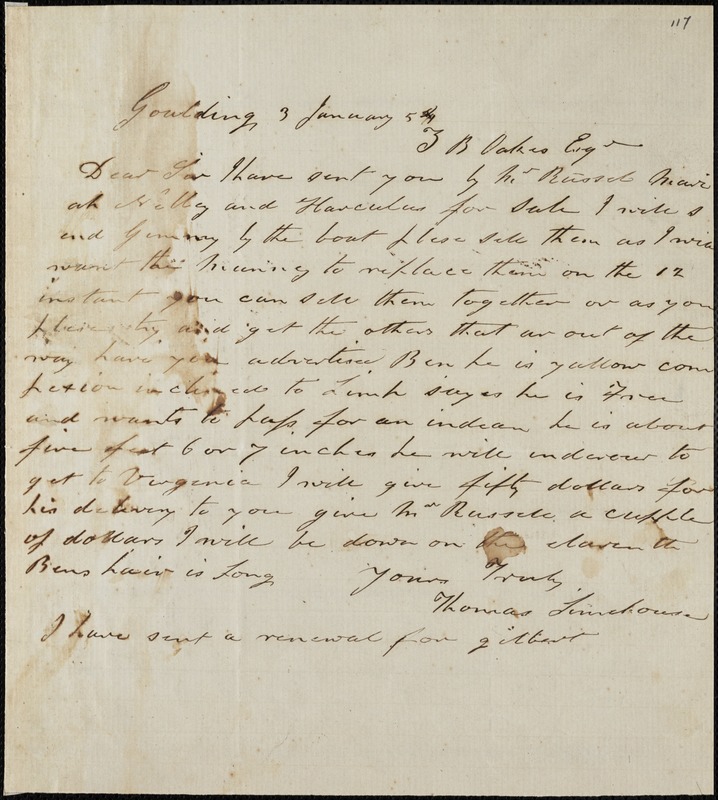 117
Goulding 3 January 54
Z B Oakes Esqr
Dear Sir I have sent you by Mr Russel Mari
ah Nelly and Harculas for sale I will s
end Gimmy by the boat plese sell them as I will
want the munny to replace them on the 12
instant you can sell them together or as you
plese try and get the others that ar out of the
way have you advertised Ben he is yallow com
plexion inclined to Limp sayes he is Free
and wants to pass for an indean he is about
five feet 6 or 7 inches he will indever to
get to Vergenia I will give fifty dollars for
his delivery to you give Mr Russell a cupple
of dollars I will be down on the eleventh
Bens hair is Long Yours Truly
Thomas Limehouse
I have sent a renewal for gilbert